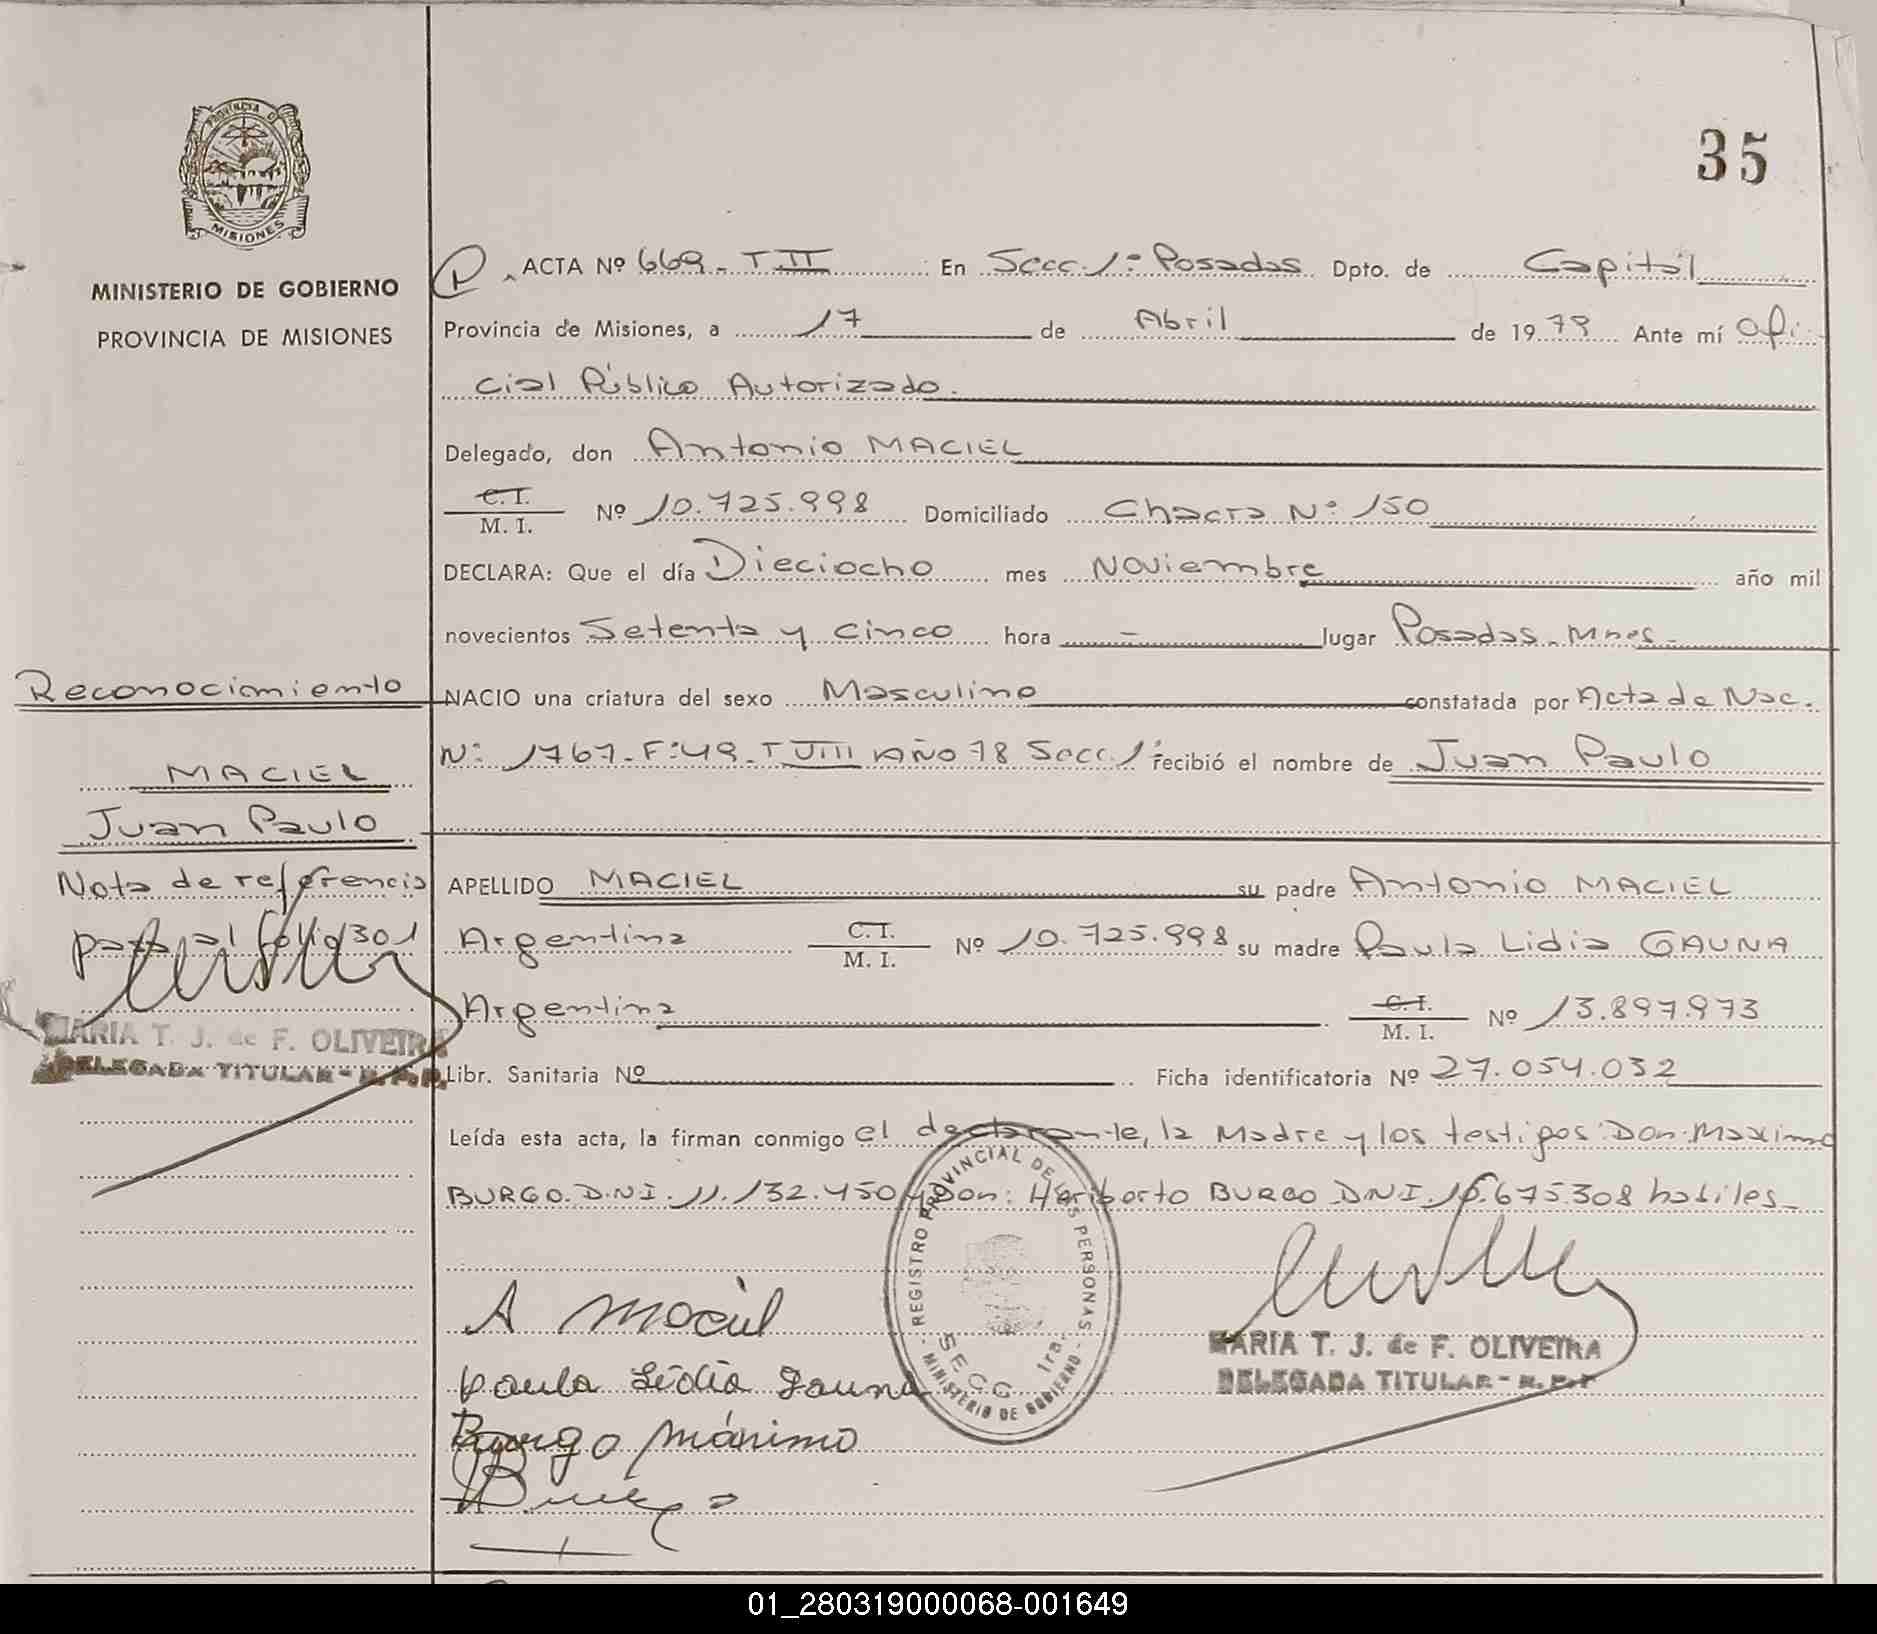 35
PROVINCIA DE
MISIONES
MINISTERIO DE GOBIERNO
PROVINCIA DE MISIONES
ACTA Nº 669 - T II En Secc. 1º Posadas Dpto. de Capital
Provincia de Misiones, a 17 de Abril de 1979 Ante mí Ofi-
cial Público Autorizado.
Delegado, don Antonio MACIEL
C. I.
M. I. Nº 10.725.998 Domiciliado Chacra Nº 150
DECLARA: Que el día Dieciocho mes Noviembre año mil
novecientos Setenta y cinco hora - lugar Posadas - Mnes -
Reconocimiento
NACIO una criatura del sexo Masculino constatada por Acta de Nac.
Nº 1767 - Fº 49 - T VIII AÑO 78 Secc. 1º recibió el nombre de Juan Paulo
MACIEL
Juan Paulo
Nota de referencia
pasa al folio 301
MARIA T. J. de F. OLIVEIRA
DELEGADA TITULAR - R. P. P.
APELLIDO MACIEL su padre Antonio MACIEL
Argentina C. I.
M. I. Nº 10.725.998 su madre Paula Lidia GAUNA
Argentina C. I.
M. I. Nº 13.897.973
Libr. Sanitaria Nº Ficha identificatoria Nº 27.054.032
Leída esta acta, la firman conmigo el declarante, la Madre y los testigos: Don Maximo
BURGO. D.N.I. 11.132.450 y Don: Heriberto BURGO DNI. 16.675.308 habiles -
REGISTRO PROVINCIAL DE LAS PERSONAS
SECC. 1ra.
MINISTERIO DE GOBIERNO
A Maciel
Paula Lidia Gauna
Burgo Máximo
MARIA T. J. de F. OLIVEIRA
DELEGADA TITULAR - R. P. P.
01_280319000068-001649